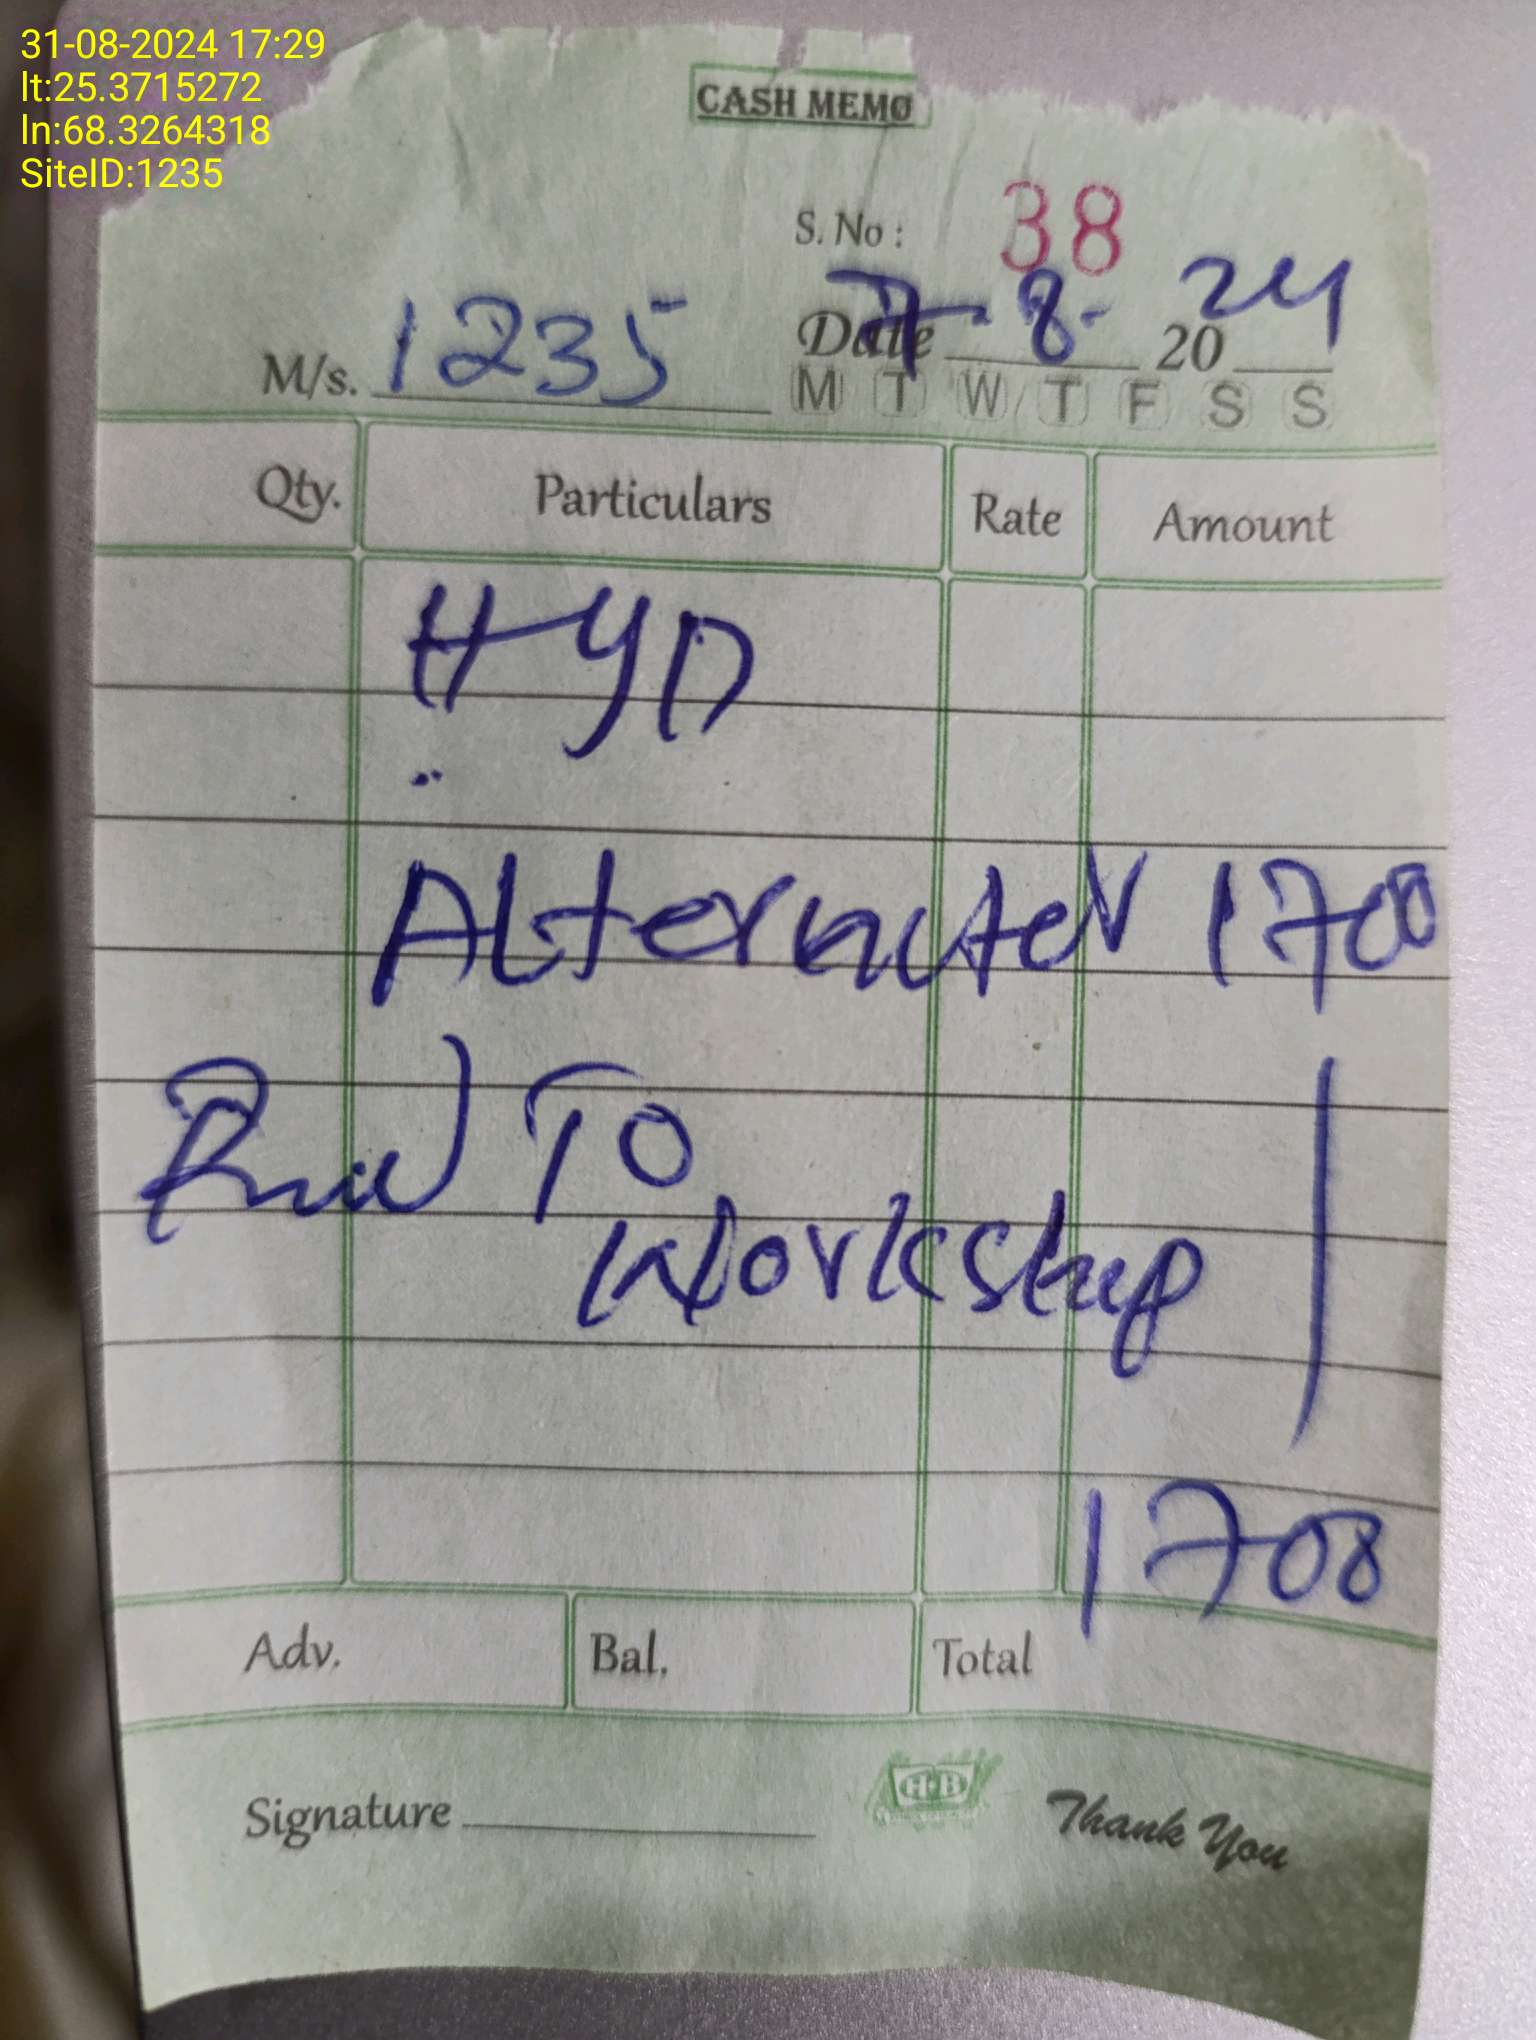 31-08-2024 17:29
lt:25.3715272
ln:68.3264318
SiteID:1235
CASH MEMO
S. No : 38
M/s. 1235 Date 7-8- 2024
M T W T F S S
Qty. Particulars Rate Amount
HYD
Alternater 1700
To
Workshop
1700
Adv. Bal. Total
Signature H·B Thank You